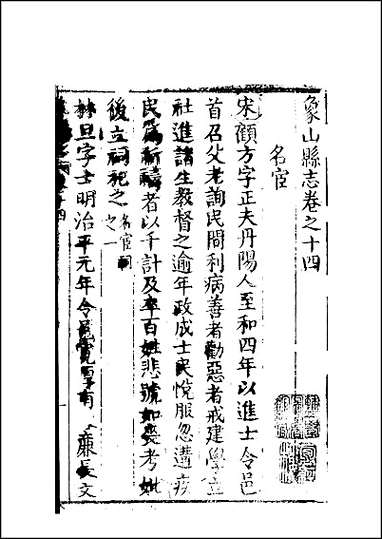 象山縣志卷之十四
名宦
宋顧方字正夫丹陽人至和四年以進士令邑
首召父老詢民間利病善者勸惡者戒建學立
社進諸生教督之逾年政成士民悅服忽遘疾
民爲祈禱者以千計及卒百姓悲號如喪考妣
後立祠祀之 名宦祠之一
林旦字士明治平元年令邑 廉長文